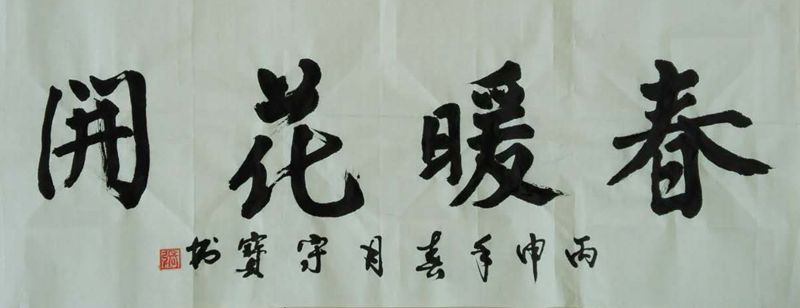 春暖花開
丙申年春月守寶